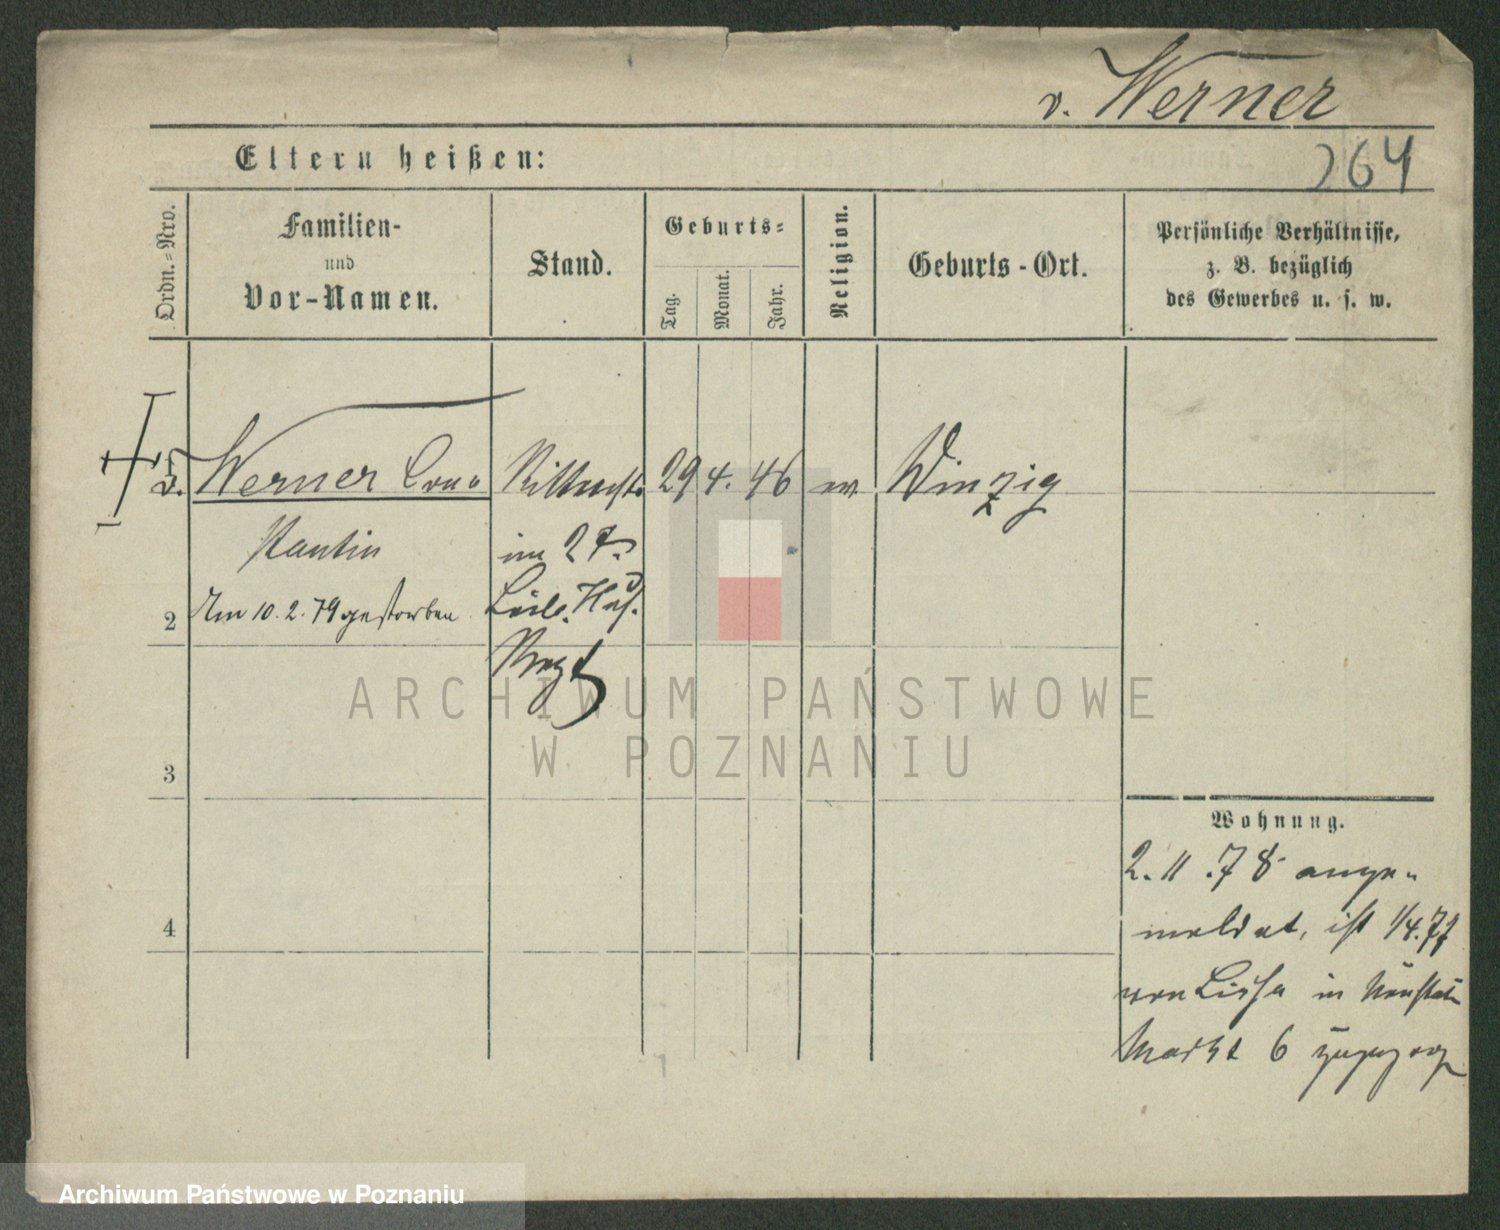 v. Werner
264
Eltern heißen:
Ordn.-Nro.
Familien-
und
Vor-Namen.
Stand.
Geburts-
Tag.
Monat.
Jahr.
Religion.
Geburts-Ort.
Persönliche Verhältnisse,
z. B. bezüglich
des Gewerbes u. s. w.
v. Werner Con=
stantin
Am 10.2.79 gestorben
Rittmstr.
im 2t.
Leib. Hus.
Regt
29 4. 46 ev Winzig
2
3
4
Wohnung.
2. 11. 78 ange=
meldet, ist 1/4.77
von Lissa in Neustädt
Markt 6 zugezog
ARCHIWUM PAŃSTWOWE
W POZNANIU
Archiwum Państwowe w Poznaniu